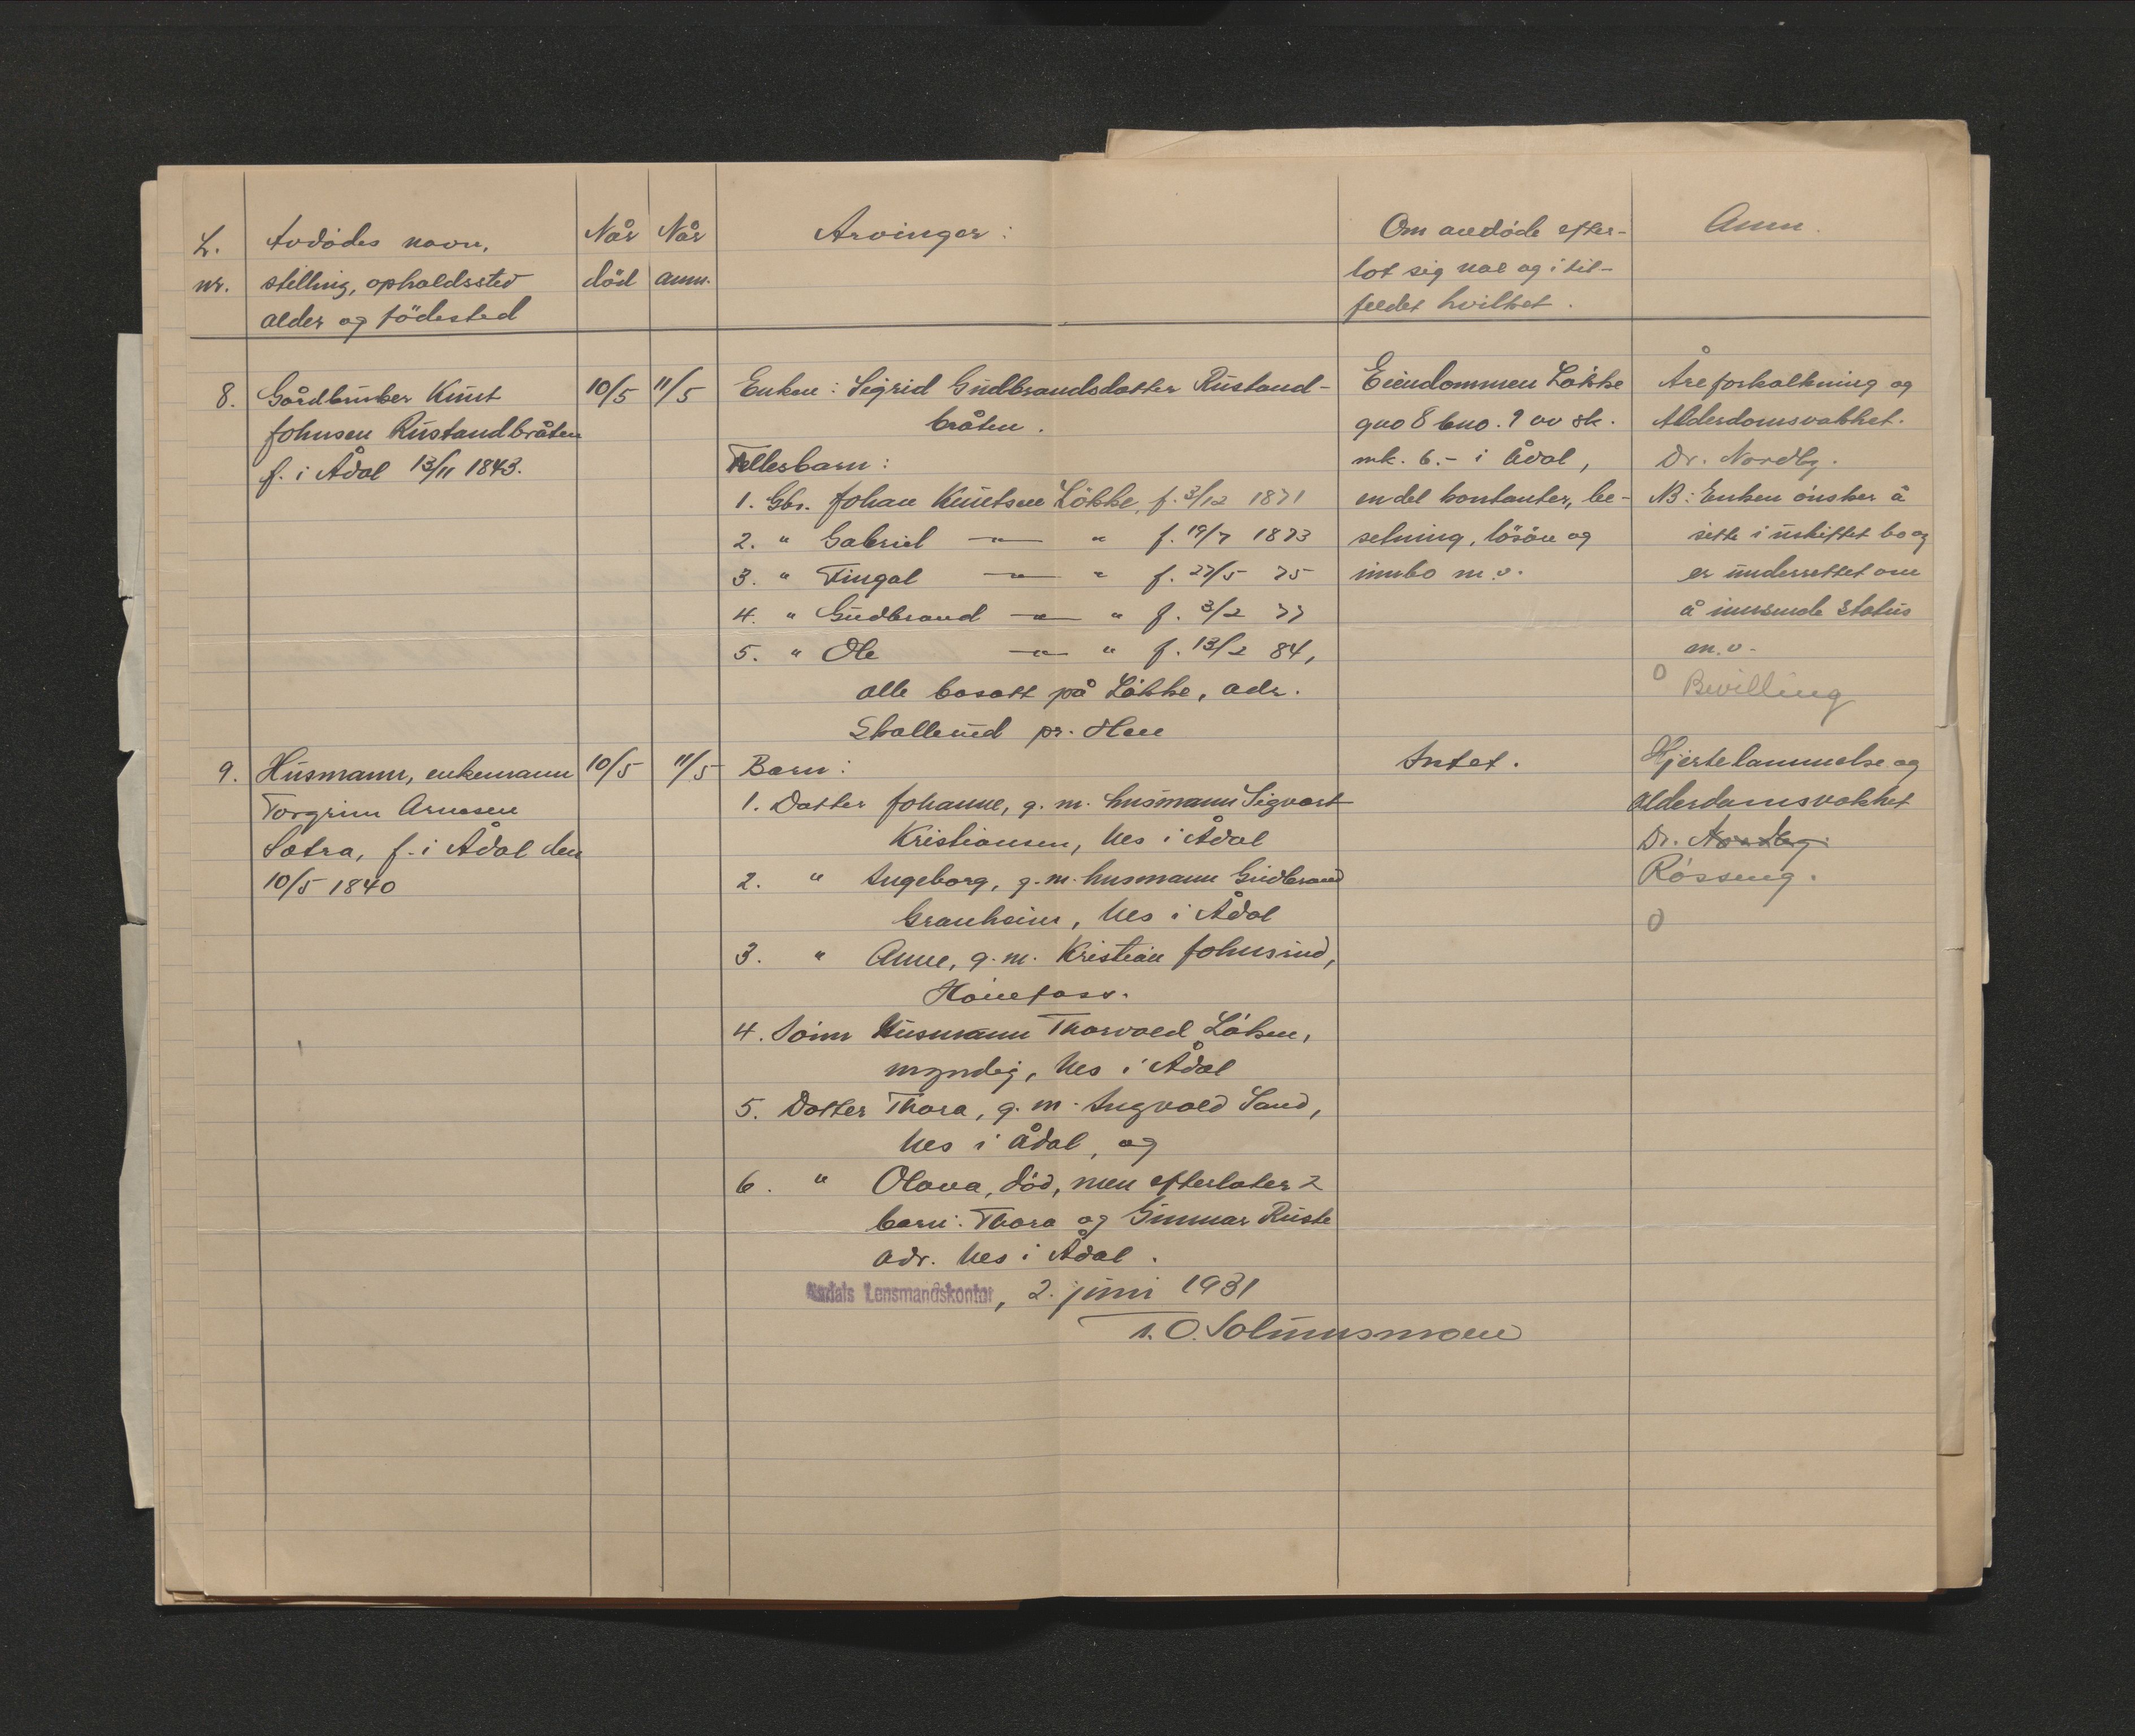 L.
nr.
Avdödes navn,
stilling, opholdssted
alder og födested
Når
död
Når
anm.
Arvinger:
Om avdöde efter-
lot sig noe og i til-
felldet hvilket.
Anm.
8.
Gårdbruker Knut
Johnsen Rustandbråten
f. i Ådal 13/11 1843.
10/5
11/5
Enken: Sigrid Gudbrandsdatter Rustand-
bråten.
Fellesbarn:
1. Gbr. Johan Knutsen Lökke, f. 3/12 1871
2. " Gabriel —"— " f. 19/7 1873
3. " Fingal —"— " f. 27/5 75
4. " Gudbrand —"— " f. 3/2 77
5. " Ole —"— " f. 13/2 84,
alle bosatt på Lökke, adr.
Skollerud pr. Hen
Eiendommen Lökke
gno 8 bno. 9 av sk.
mk. 6.- i Ådal,
en del kontanter, be-
setning, lösöre og
innbo m.v.
Åreforkalkning og
Alderdomsvakhet.
Dr. Nordby.
NB: Enken önsker å
sitte i uskiftet bo og
er underrettet om
å innsende status
m.v.
0 Bevilling
9.
Husmann, enkemann
Torgrim Arnesen
Sætra, f. i Ådal den
10/5 1840
10/5
11/5
Barn:
1. Datter Johanne, g. m. husmann Sigvart
Kristiansen, Nes i Ådal
2. " Ingeborg, g. m. husmann Gudbrand
Granheim, Nes i Ådal
3. " Anne, g. m. Kristian Johnsrud,
Hönefoss.
4. Sönn Husmann Thorvald Löken,
myndig, Nes i Ådal
5. Datter Thora, g. m. Ingvald Sand,
Nes i Ådal, og
6. " Olava, död, men efterlater 2
barn: Thora og Gunnar Ruste
adr. Nes i Ådal.
Intet.
Hjertelammelse og
alderdomsvakhet
Dr. Nordby.
Rösseng.
0
Aadals Lensmandskontor, 2. juni 1931
T. O. Solumsmoen